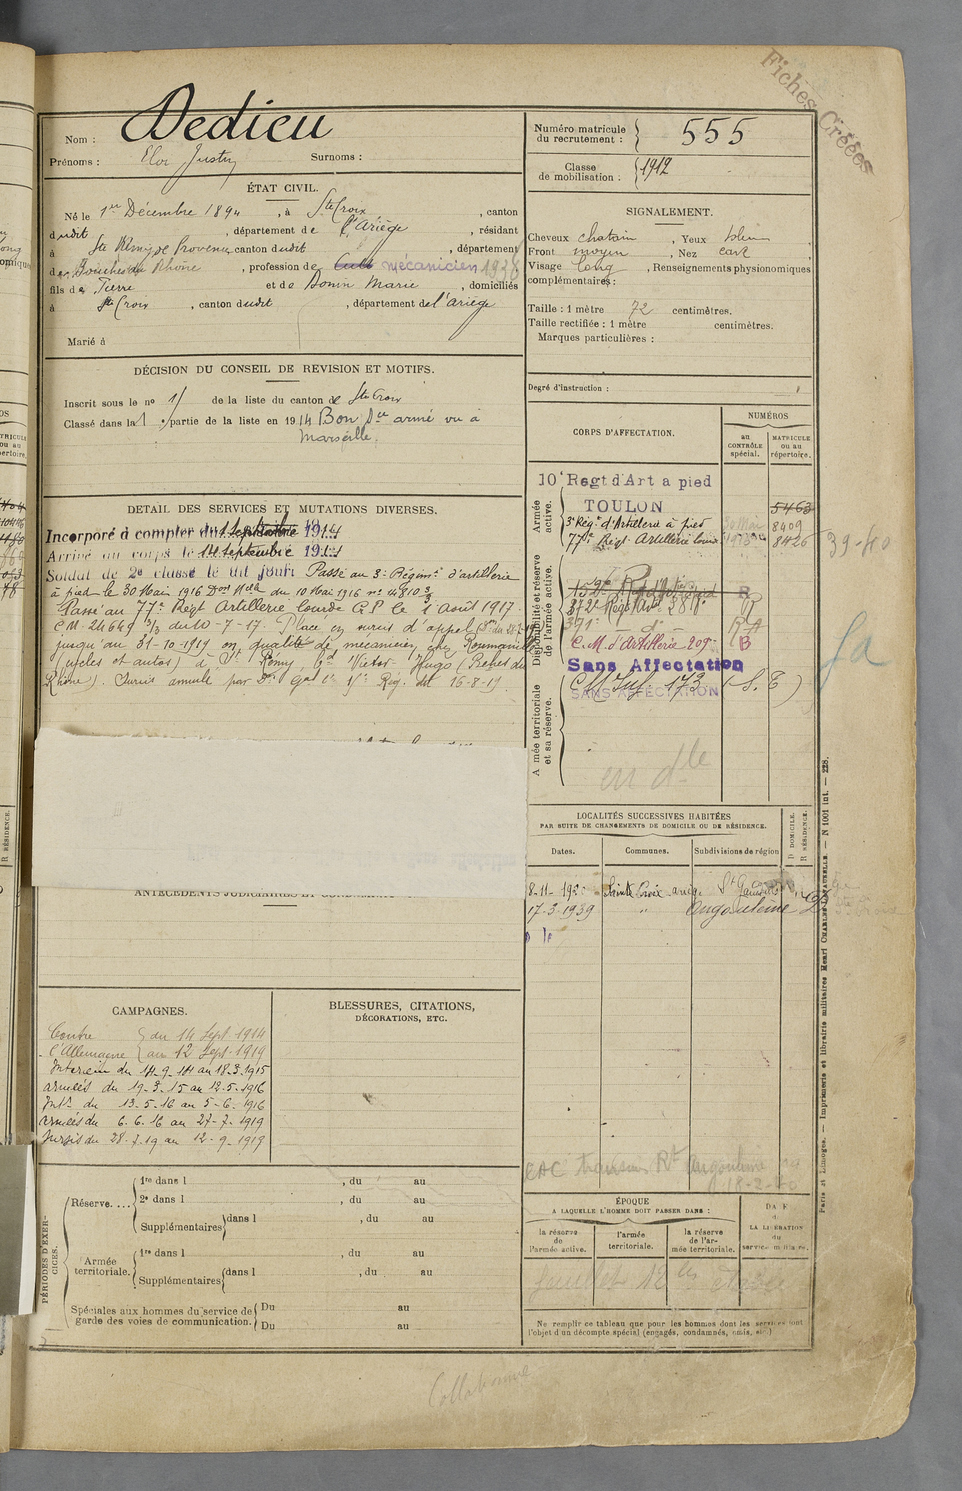 Fiches Créées
Nom : Dedieu
Prénoms : Eloi Justin Surnoms :
Numéro matricule du recrutement : 555
Classe de mobilisation : 1912
ÉTAT CIVIL.
Né le 1er Décembre 1894, à Ste Croix, canton
dudit, département de l'Ariège, résidant
à Ste Rémy de Provence canton dudit, département
des Bouches du Rhône, profession de Cult mécanicien 1938
fils de Pierre et de Bonin Marie, domiciliés
à Ste Croix, canton dudit, département de l'Ariège
Marié à
SIGNALEMENT.
Cheveux chatain, Yeux bleu,
Front moyen, Nez cave
Visage long, Renseignements physionomiques
complémentaires :
Taille : 1 mètre 72 centimètres.
Taille rectifiée : 1 mètre centimètres.
Marques particulières :
Degré d'instruction :
DÉCISION DU CONSEIL DE REVISION ET MOTIFS.
Inscrit sous le no 1 de la liste du canton de Ste Croix
Classé dans la 1 partie de la liste en 1914 Bon Sce armé vu à
Marseille.
DETAIL DES SERVICES ET MUTATIONS DIVERSES.
Incorporé à compter du 1 septembre 1914
Arrivé au corps le 14 septembre 1914
Soldat de 2e classe le dit jour. Passé au 3e Régimt d'artillerie
à pied le 30 Mai 1916 Don Mlle du 10 Mai 1916 no 4810 3/3
Passé au 77e Régt Artillerie lourde GP le 1 Août 1917.
CM 24649 3/3 du 10-7-17. Placé en sursis d'appel
jusqu'au 31-10-1919 en qualité de mécanicien, chez Roumanille
(cycles et autos) à St Rémy Bd Victor-Hugo (Bches du
Rhône). Sursis annulé par Dn Gal Ct Rég. du 16-8-19.
CORPS D'AFFECTATION.
NUMÉROS
au CONTRÔLE spécial.
MATRICULE ou au répertoire.
Armée active.
10e Regt d'Art a pied
TOULON 5463
3e Régt d'Artillerie à pied 8409
77e Régt Artillerie lourde 8426
39-40
Disponibilité et réserve de l'armée active.
372e Régt Art
C.M. d'Artillerie 209 B
Sans Affectation
Armée territoriale et sa réserve.
SANS AFFECTATION
en dle
LOCALITÉS SUCCESSIVES HABITÉES
PAR SUITE DE CHANGEMENTS DE DOMICILE OU DE RÉSIDENCE.
Dates. Communes. Subdivisions de région D DOMICILE. R RÉSIDENCE.
8-11-1920 Sainte Croix ariège St Gaudens
17-3-1939 " Angoulême D
CAMPAGNES.
Contre l'Allemagne { du 14 Sept. 1914
au 12 Sept. 1919
Intérieur du 14-9-14 au 18-3-1915
armées du 19-3-15 au 12-5-1916
Intr du 13-5-16 au 5-6-1916
armées du 6.6.16 au 27-7-1919
Sursis du 28-7-19 au 12-9-1919
BLESSURES, CITATIONS,
DÉCORATIONS, ETC.
PÉRIODES D'EXERCICES.
Réserve.... 1re dans l , du au
2e dans l , du au
Supplémentaires dans l , du au
Armée territoriale. 1re dans l , du au
Supplémentaires dans l , du au
Spéciales aux hommes du service de garde des voies de communication. Du au
Du au
ÉPOQUE
A LAQUELLE L'HOMME DOIT PASSER DANS :
la réserve de l'armée active.
l'armée territoriale.
la réserve de l'armée territoriale.
DATE de LA LIBÉRATION du service militaire.
Ne remplir ce tableau que pour les hommes dont les services font
l'objet d'un décompte spécial (engagés, condamnés, omis, etc.)
Paris et Limoges. — Imprimerie et librairie militaires Henri CHARLES-LAVAUZELLE. — N 1001 int. — 228.